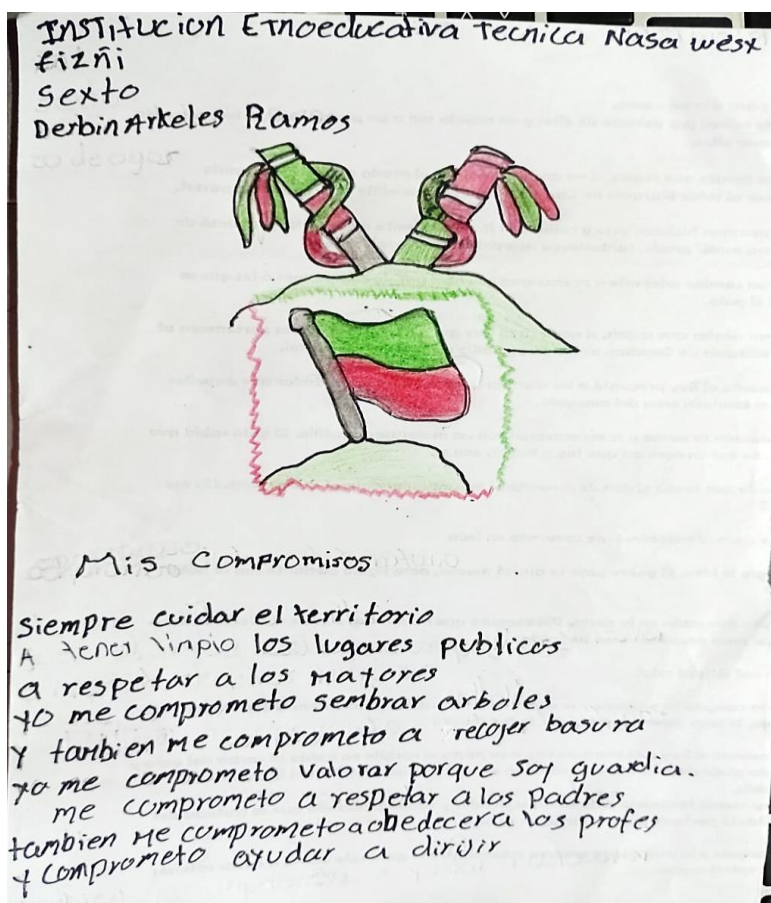 INSTITUCION ETnoeducativa Tecnica Nasa wesx
fizñi
Sexto
Derbin Arkeles Ramos
Mis Compromisos
Siempre cuidar el territorio
A tener linpio los lugares publicos
a respetar a los Mayores
yo me comprometo sembrar arboles
Y tanbien me comprometo a recojer basura
yo me comprometo valorar porque soy guardia.
me comprometo a respetar a los padres,
tambien Me comprometo a obedecer a los profes
Y comprometo ayudar a dirijir